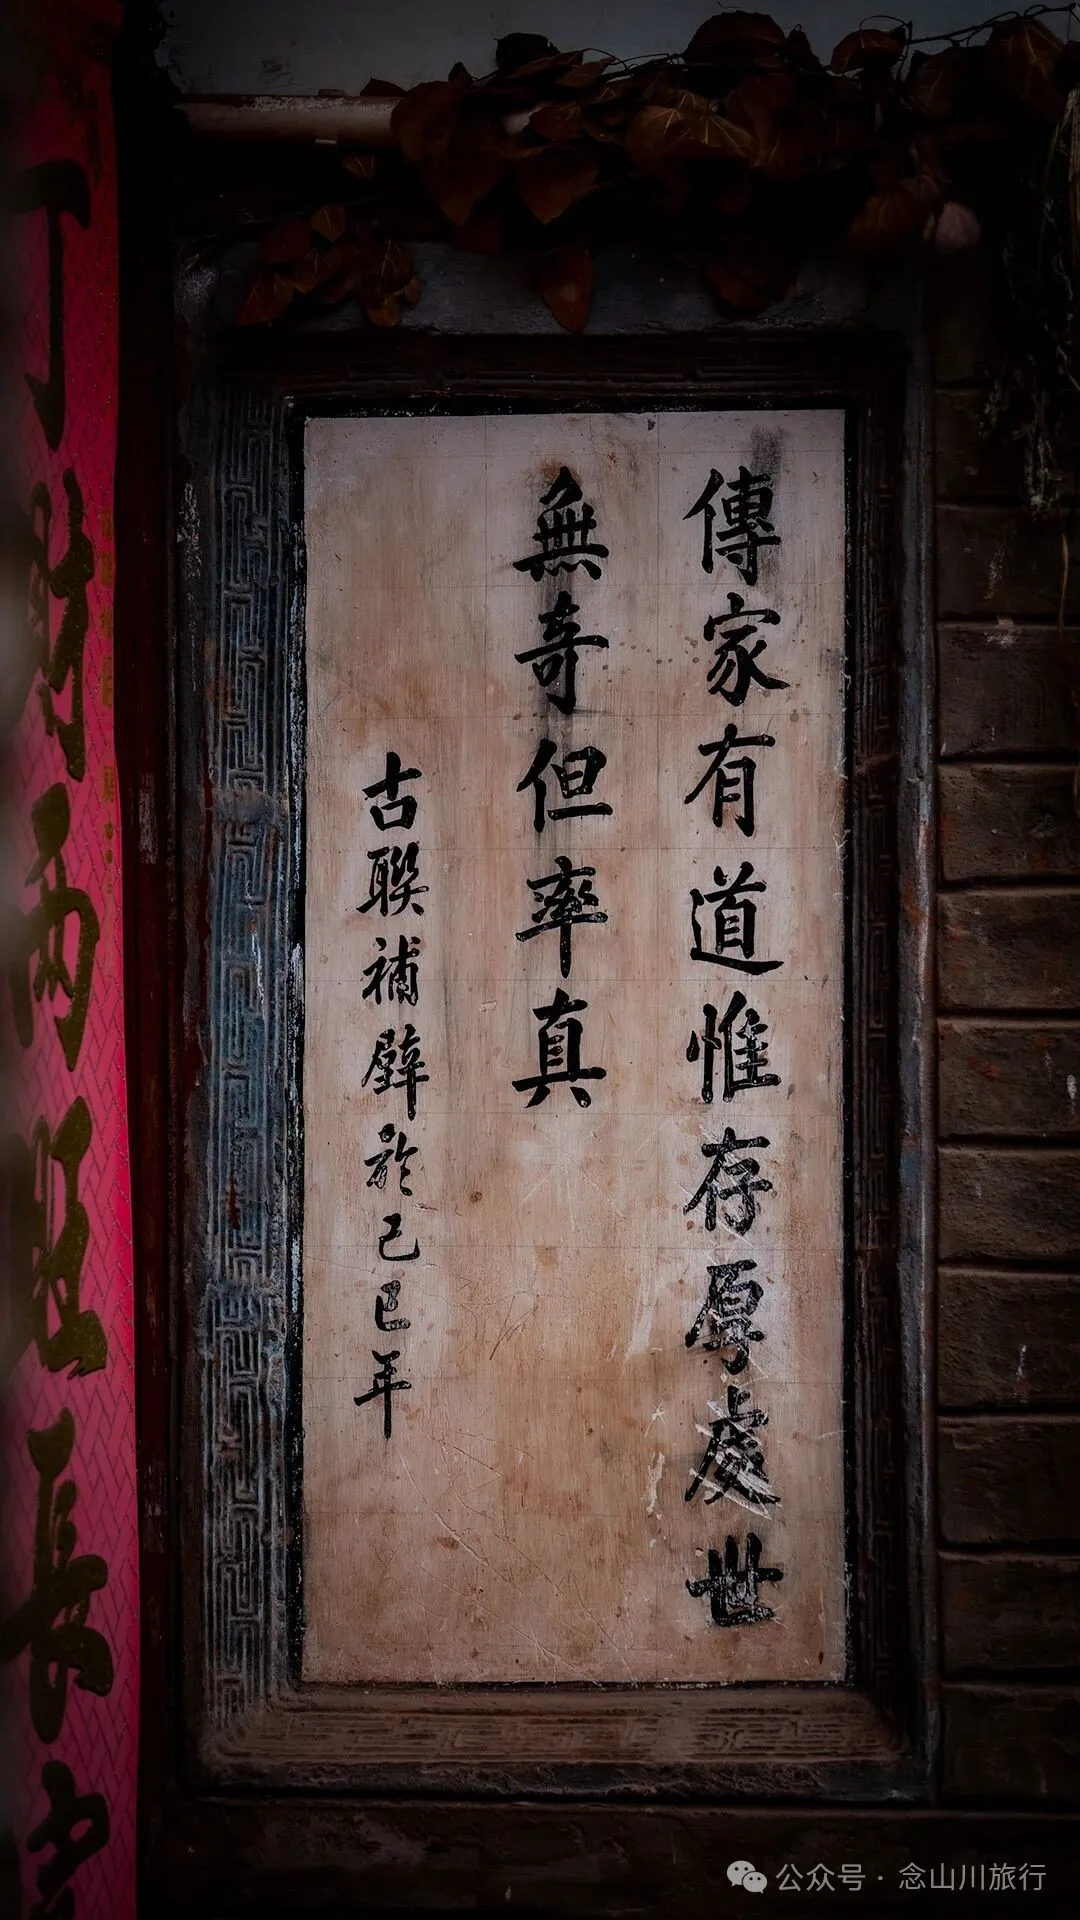 傳家有道惟存厚處世
無奇但率真
古聯補壁於己巳年
丁財兩旺長
公众号 · 念山川旅行